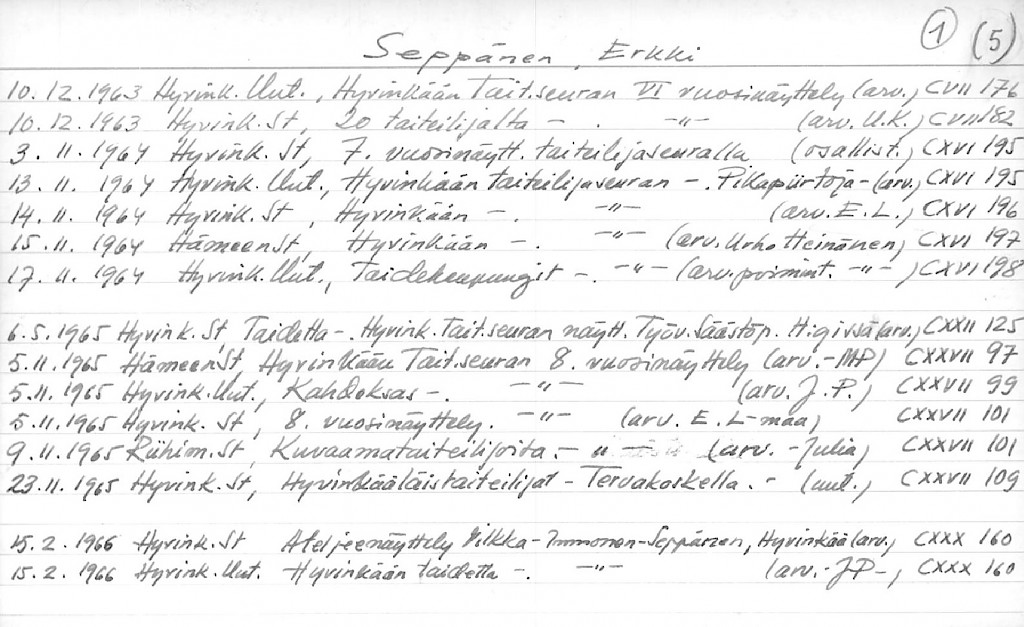 1 (5)
Seppänen, Erkki
10.12.1963 Hyvink.Uut., Hyvinkään Tait.seuran VI vuosinäyttely (arv.) CVII 176
10.12.1963 Hyvink.St, 20 taiteilijalta - . -"- (arv. U.K.) CVII 182
3.11.1964 Hyvink.St, 7. vuosinäytt. taiteilijaseuralla (osallist.) CXVI 195
13.11.1964 Hyvink.Uut., Hyvinkään taiteilijaseuran - . Pikapiirtoja - (arv.) CXVI 195
14.11.1964 Hyvink.St, Hyvinkään - . -"- (arv. E.L.) CXVI 196
15.11.1964 HämeenSt, Hyvinkään - . -"- (arv. Urho Heinänen) CXVI 197
17.11.1964 Hyvink.Uut., Taidekaupungit - . -"- (arv. poimint. -"-) CXVI 198
6.5.1965 Hyvink.St, Taidetta - . Hyvink.Tait.seuran näytt. Työv.Säästöp. H:gissä (arv.) CXXII 125
5.11.1965 HämeenSt, Hyvinkään Tait.seuran 8. vuosinäyttely (arv. -MP) CXXVII 97
5.11.1965 Hyvink.Uut., Kahdeksas - . -"- (arv. J.P.) CXXVII 99
5.11.1965 Hyvink.St, 8. vuosinäyttely. -"- (arv. E.L-maa) CXXVII 101
9.11.1965 Riihim.St, Kuvaamataiteilijoita - " (arv. -Julia) CXXVII 101
23.11.1965 Hyvink.St, Hyvinkääläistaiteilijat - Tervakoskella. - (uut.) CXXVII 109
15.2.1966 Hyvink.St Ateljeenäyttely Vilkka-Immonen-Seppänen, Hyvinkää (arv.) CXXX 160
15.2.1966 Hyvink.Uut. Hyvinkään taidetta - . -"- (arv. -JP-) CXXX 160